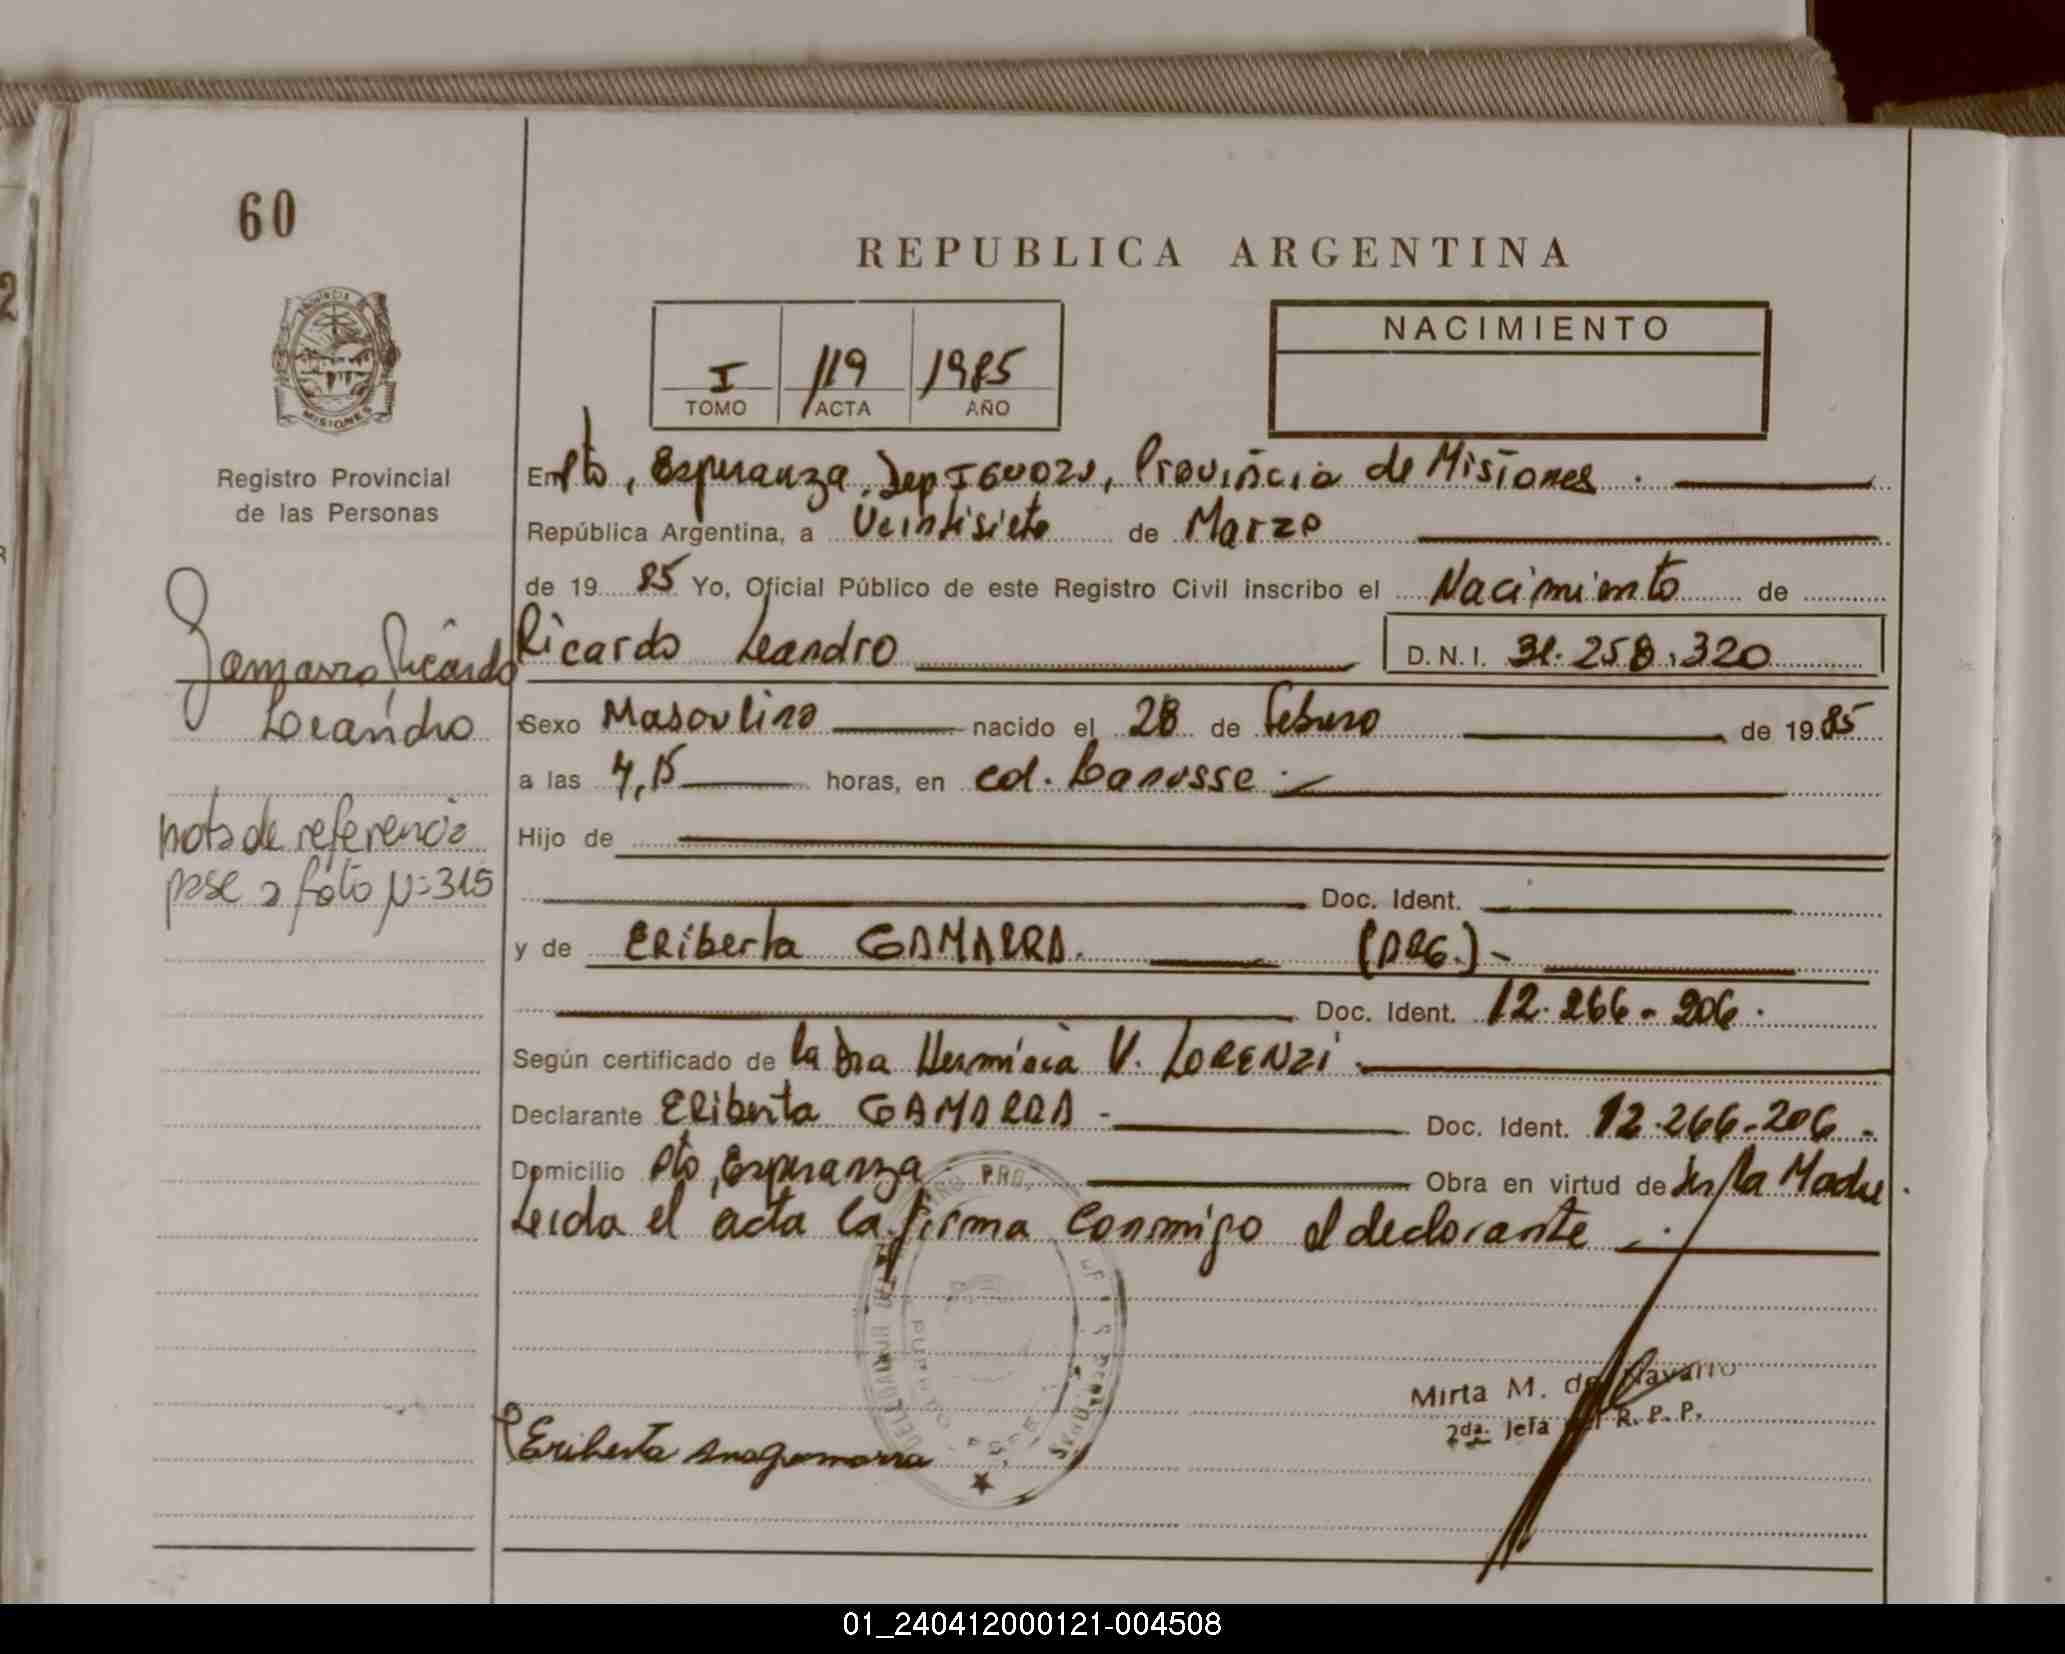 60
REPUBLICA ARGENTINA
PROVINCIA DE
MISIONES
Registro Provincial
de las Personas
I 119 1985
TOMO ACTA AÑO
NACIMIENTO
En Pto, Esperanza, Dep IGUAZU, Provincia de Misiones.
República Argentina, a Veintisiete de Marzo
de 1985 Yo, Oficial Público de este Registro Civil inscribo el Nacimiento de
Ricardo Leandro D.N.I. 31.258.320
Gamarra Ricardo
Leandro
Sexo Masculino nacido el 28 de Febrero de 1985
a las 4,15 horas, en col. Lanusse.
nota de referencia
pase a foto Nº 315
Hijo de
Doc. Ident.
y de ERiberta GAMARRA. (ARG.)-
Doc. Ident. 12.266-206.
Según certificado de la Dra Herminia V. LORENZI.
Declarante ERiberta GAMARRA - Doc. Ident. 12.266-206-
Domicilio Pto, Esperanza Obra en virtud de Ser la Madre.
Leida el acta la firma conmigo el declarante
Mirta M. de Navarro
2da. Jefa del R. P. P.
Eriberta
01_240412000121-004508